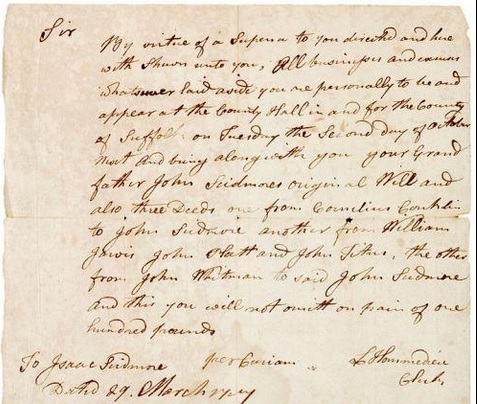 Sir
By virtue of a Supena to you directed and here
with Shewn unto you, All businesses and excuses
whatsoever Laid aside you are personally to be and
appear at the County Hall in and for the County
of Suffolk on Tuesday the Second day of October
Next And bring along with you your Grand
father John Scidmores original Will and
also three Deeds one from Cornelius Conklin
to John Scidmore another from William
Jarvis John Platt and John Titus, the other
from John Whitman to said John Scidmore
and this you will not omitt on pain of one
hundred pounds
To Isaac Scidmore per Curiam L'Hommedieu
Dated 29. March Clerk